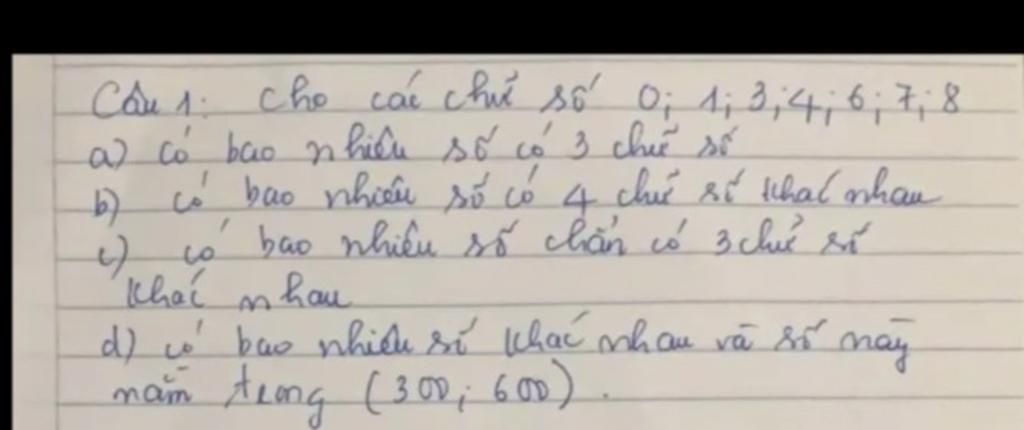 Câu 1: Cho các chữ số 0; 1; 3; 4; 6; 7; 8
a) có bao nhiêu số có 3 chữ số
b) có bao nhiêu số có 4 chữ số khác nhau
c) có bao nhiêu số chẵn có 3 chữ số
khác nhau
d) có bao nhiêu số khác nhau và số này
nằm trong (300; 600).